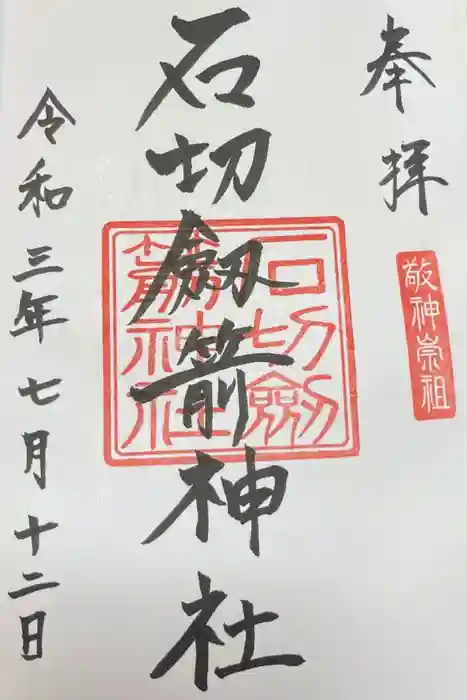 奉拝
敬神崇祖
石切劔箭神社
石切劔
箭神社
令和三年七月十二日